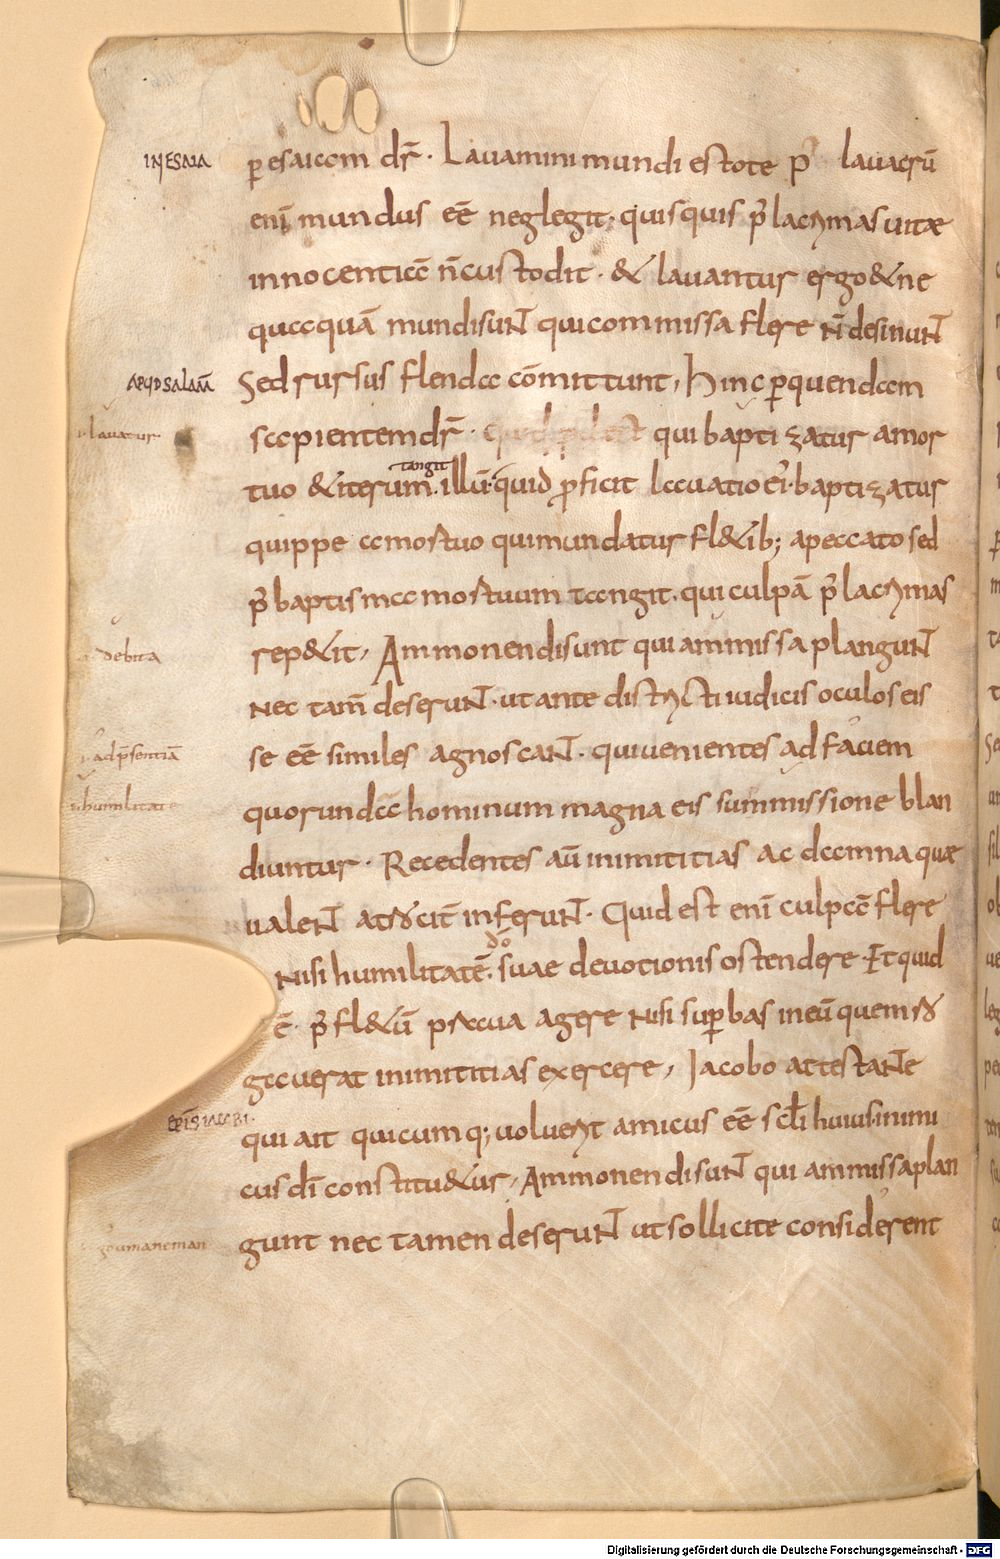 IN ESAIA
p esaiam dr̄. Lauamini mundi estote p lauacrū
enī mundus eē neglegit. quisquis p̄ lacrymas uitae
innocentiā n̄ custodit. & lauantur ergo & ne
quaquā mundi sunt qui commissa flere n̄ desinunt
APUD SALAM̄
Sed rursus flenda cōmittunt, Hinc p quendam
lauatur
sapientem dr̄. qui baptizatur a mor
tangit
tuo & iterum. illū. quid proficit lauatio ei. baptizatur
quippe a mortuo qui mundatur fl&ib; a peccato sed
p̄ baptisma mortuum tangit. qui culpā p̄ lacrymas
debita
rep&it, Ammonendi sunt qui ammissa plangunt
nec tam̄ deserunt. ut ante districti iudicis oculos eis
ad p̄sentiā
se eē similes agnoscant. qui uenientes ad faciem
humilitate
quorundā hominum magna eis summissione blan
diuntur. Recedentes aū inimititias ac damna quae
ualent atrociṫ inferunt. Quid est enī culpā flere
dō
nisi humilitatē. suae deuotionis ostendere. Et quid
ē. p̄ fl&ū praua agere nisi superbas in eū quem ro
gauerat inimititias exercere, Iacobo attestante
EPIS̄ IACOBI.
qui ait quicumq; uoluerit amicus eē scl̄i huius. inimi
cus dī constitu&ur, Ammonendi sunt qui ammissa plan
gunt nec tamen deserunt ut sollicite considerent